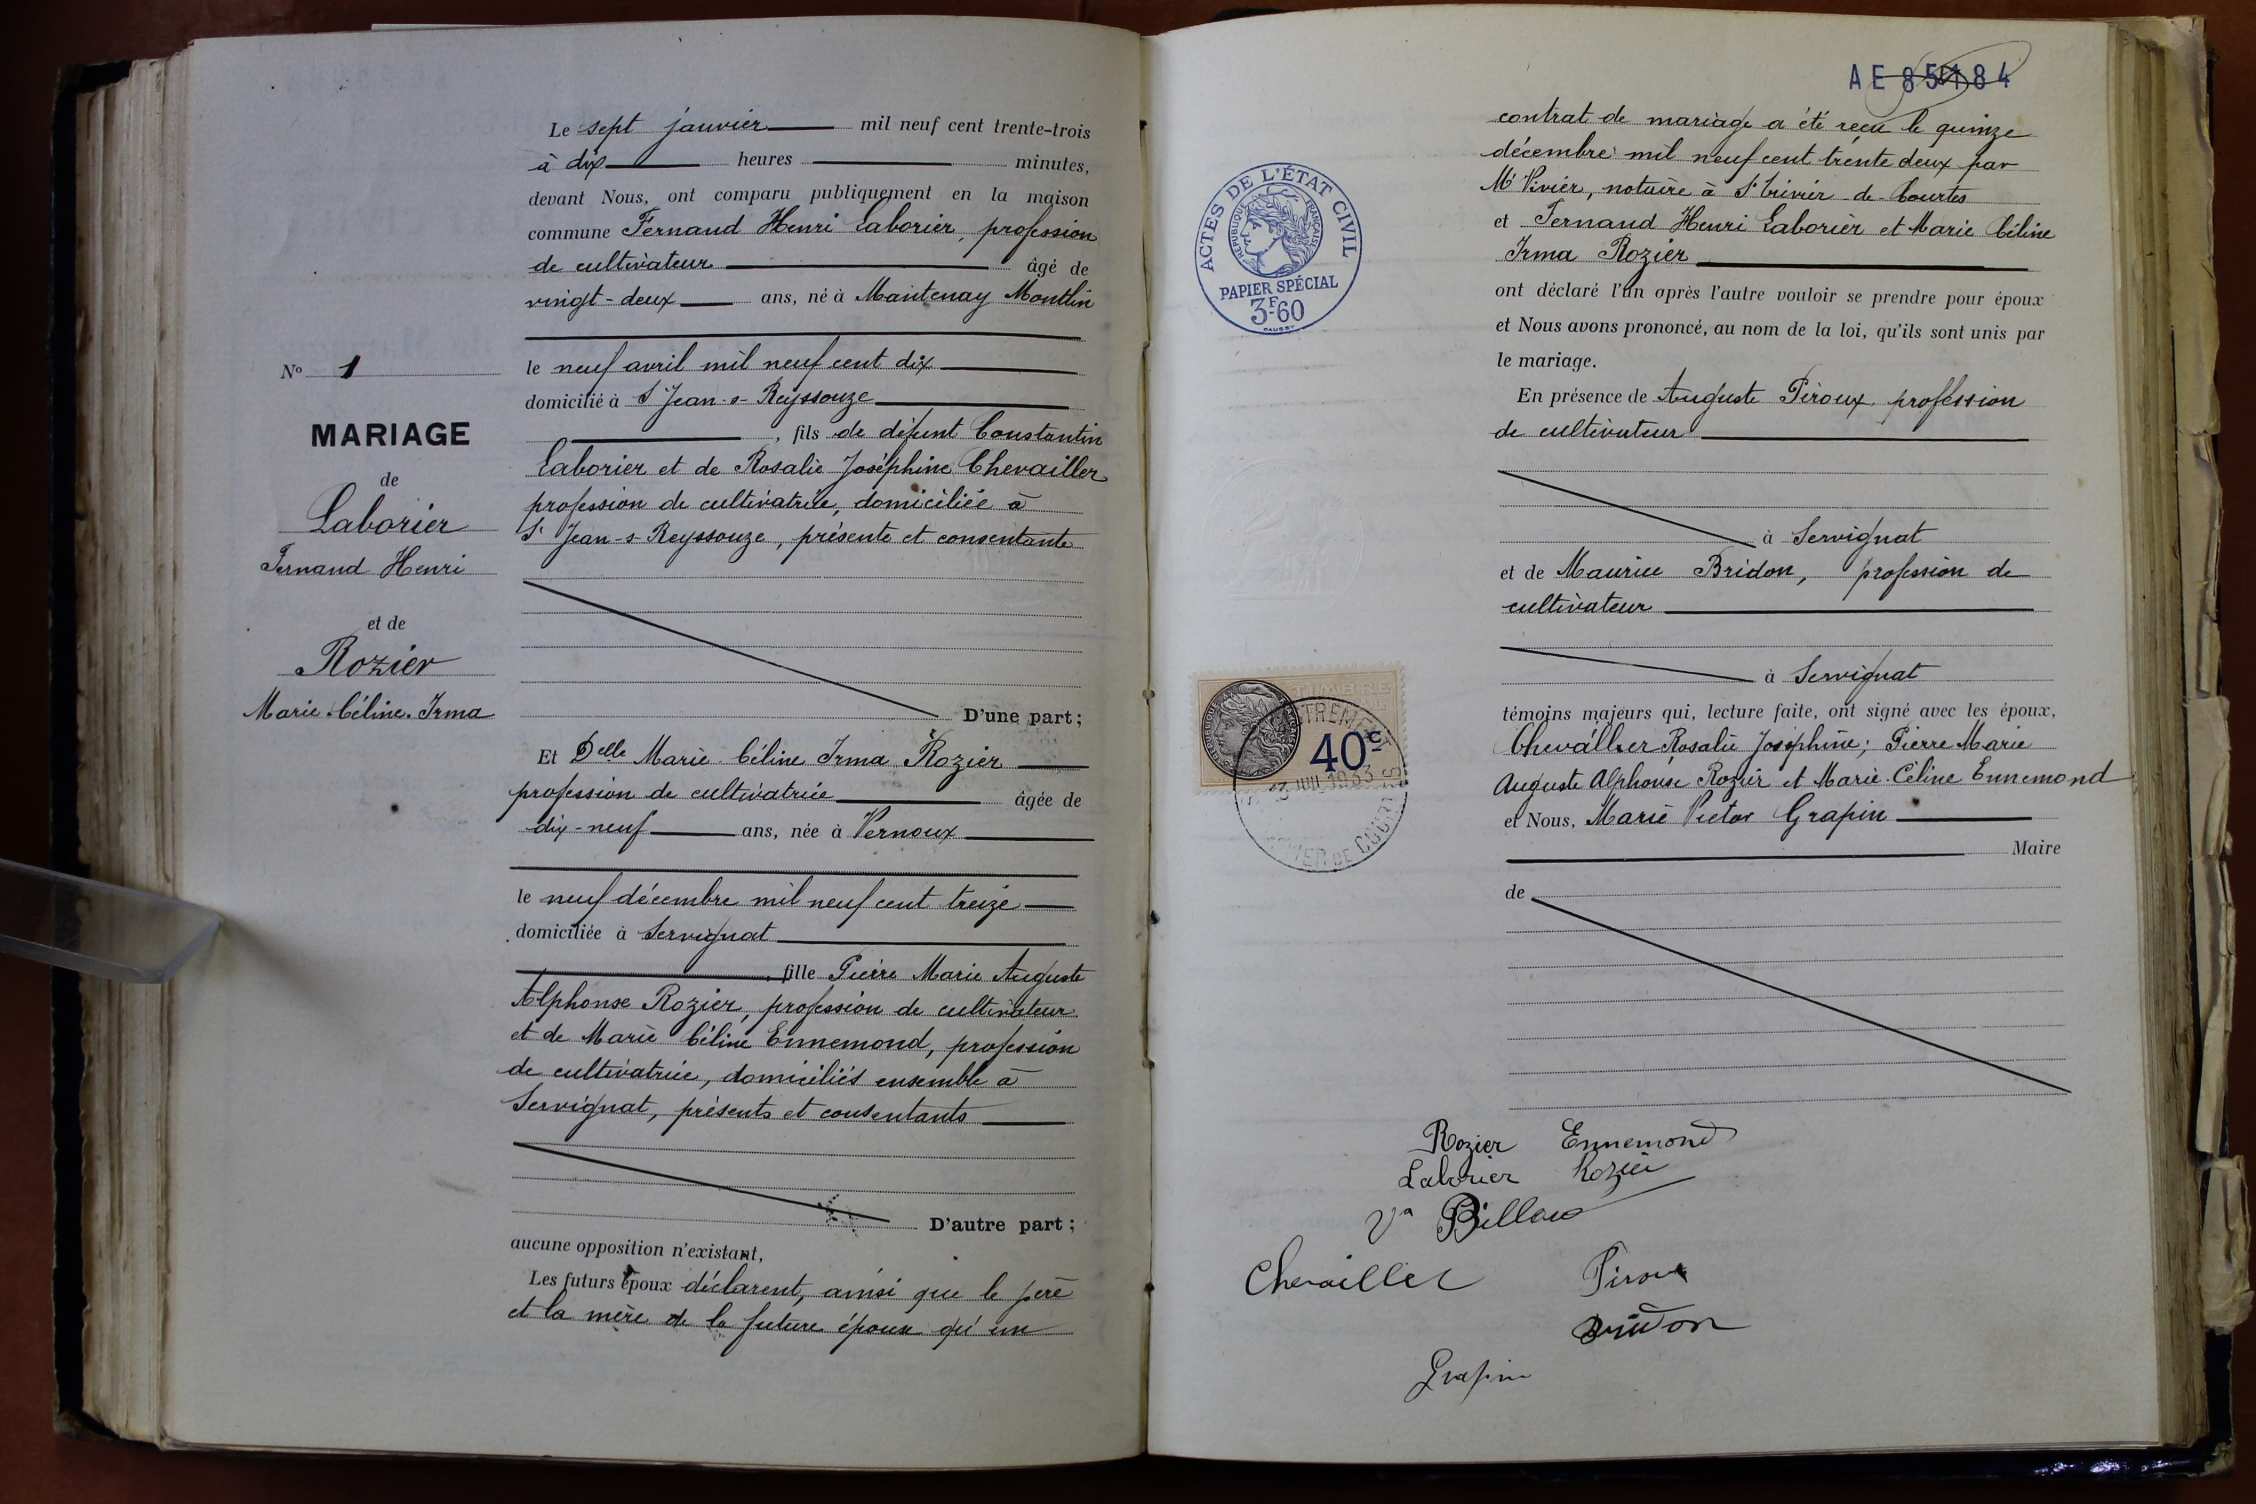 Le sept janvier mil neuf cent trente-trois
à dix heures minutes,
devant Nous, ont comparu publiquement en la maison
commune Fernand Henri Laborier, profession
de cultivateur âgé de
vingt-deux ans, né à Mantenay Montlin
le neuf avril mil neuf cent dix
domicilié à St Jean-s-Reyssouze
, fils de défunt Constantin
Laborier et de Rosalie Joséphine Chevailler
profession de cultivatrice, domiciliée à
St Jean-s-Reyssouze, présente et consentante
D'une part;
Et Delle Marie Céline Irma Rozier
profession de cultivatrice âgée de
dix-neuf ans, née à Vernoux
le neuf décembre mil neuf cent treize
domiciliée à Servignat
, fille Pierre Marie Auguste
Alphonse Rozier, profession de cultivateur
et de Marie Céline Ennemond, profession
de cultivatrice, domiciliés ensemble à
Servignat, présents et consentants
D'autre part;
aucune opposition n'existant,
Les futurs époux déclarent, ainsi que le père
et la mère de la future époux qu'un
No 1
MARIAGE
de
Laborier
Fernand Henri
et de
Rozier
Marie-Céline-Irma
contrat de mariage a été reçu le quinze
décembre mil neuf cent trente deux par
Me Vivier, notaire à St Trivier-de-Courtes
et Fernand Henri Laborier et Marie Céline
Irma Rozier
ont déclaré l'un après l'autre vouloir se prendre pour époux
et Nous avons prononcé, au nom de la loi, qu'ils sont unis par
le mariage.
En présence de Auguste Piroux profession
de cultivateur
à Servignat
et de Maurice Bridon, profession de
cultivateur
à Servignat
témoins majeurs qui, lecture faite, ont signé avec les époux,
Chevallier Rosalie Joséphine; Pierre Marie
Auguste Alphonse Rozier et Marie-Céline Ennemond
et Nous, Marie Victor Grapin
Maire
de
Rozier Ennemond
Laborier Rozier
Chevailler Piroux
Bridon
Grapin
ACTES DE L'ÉTAT CIVIL
RÉPUBLIQUE FRANÇAISE
PAPIER SPÉCIAL
3F60
TIMBRE
40c